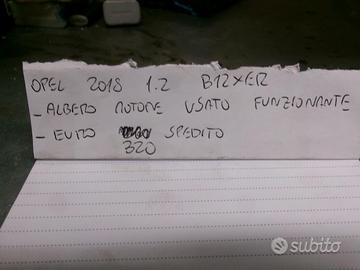 OPEL 2018 1.2 B12XER
- ALBERO MOTORE USATO FUNZIONANTE
- EURO SPEDITO
320
subito